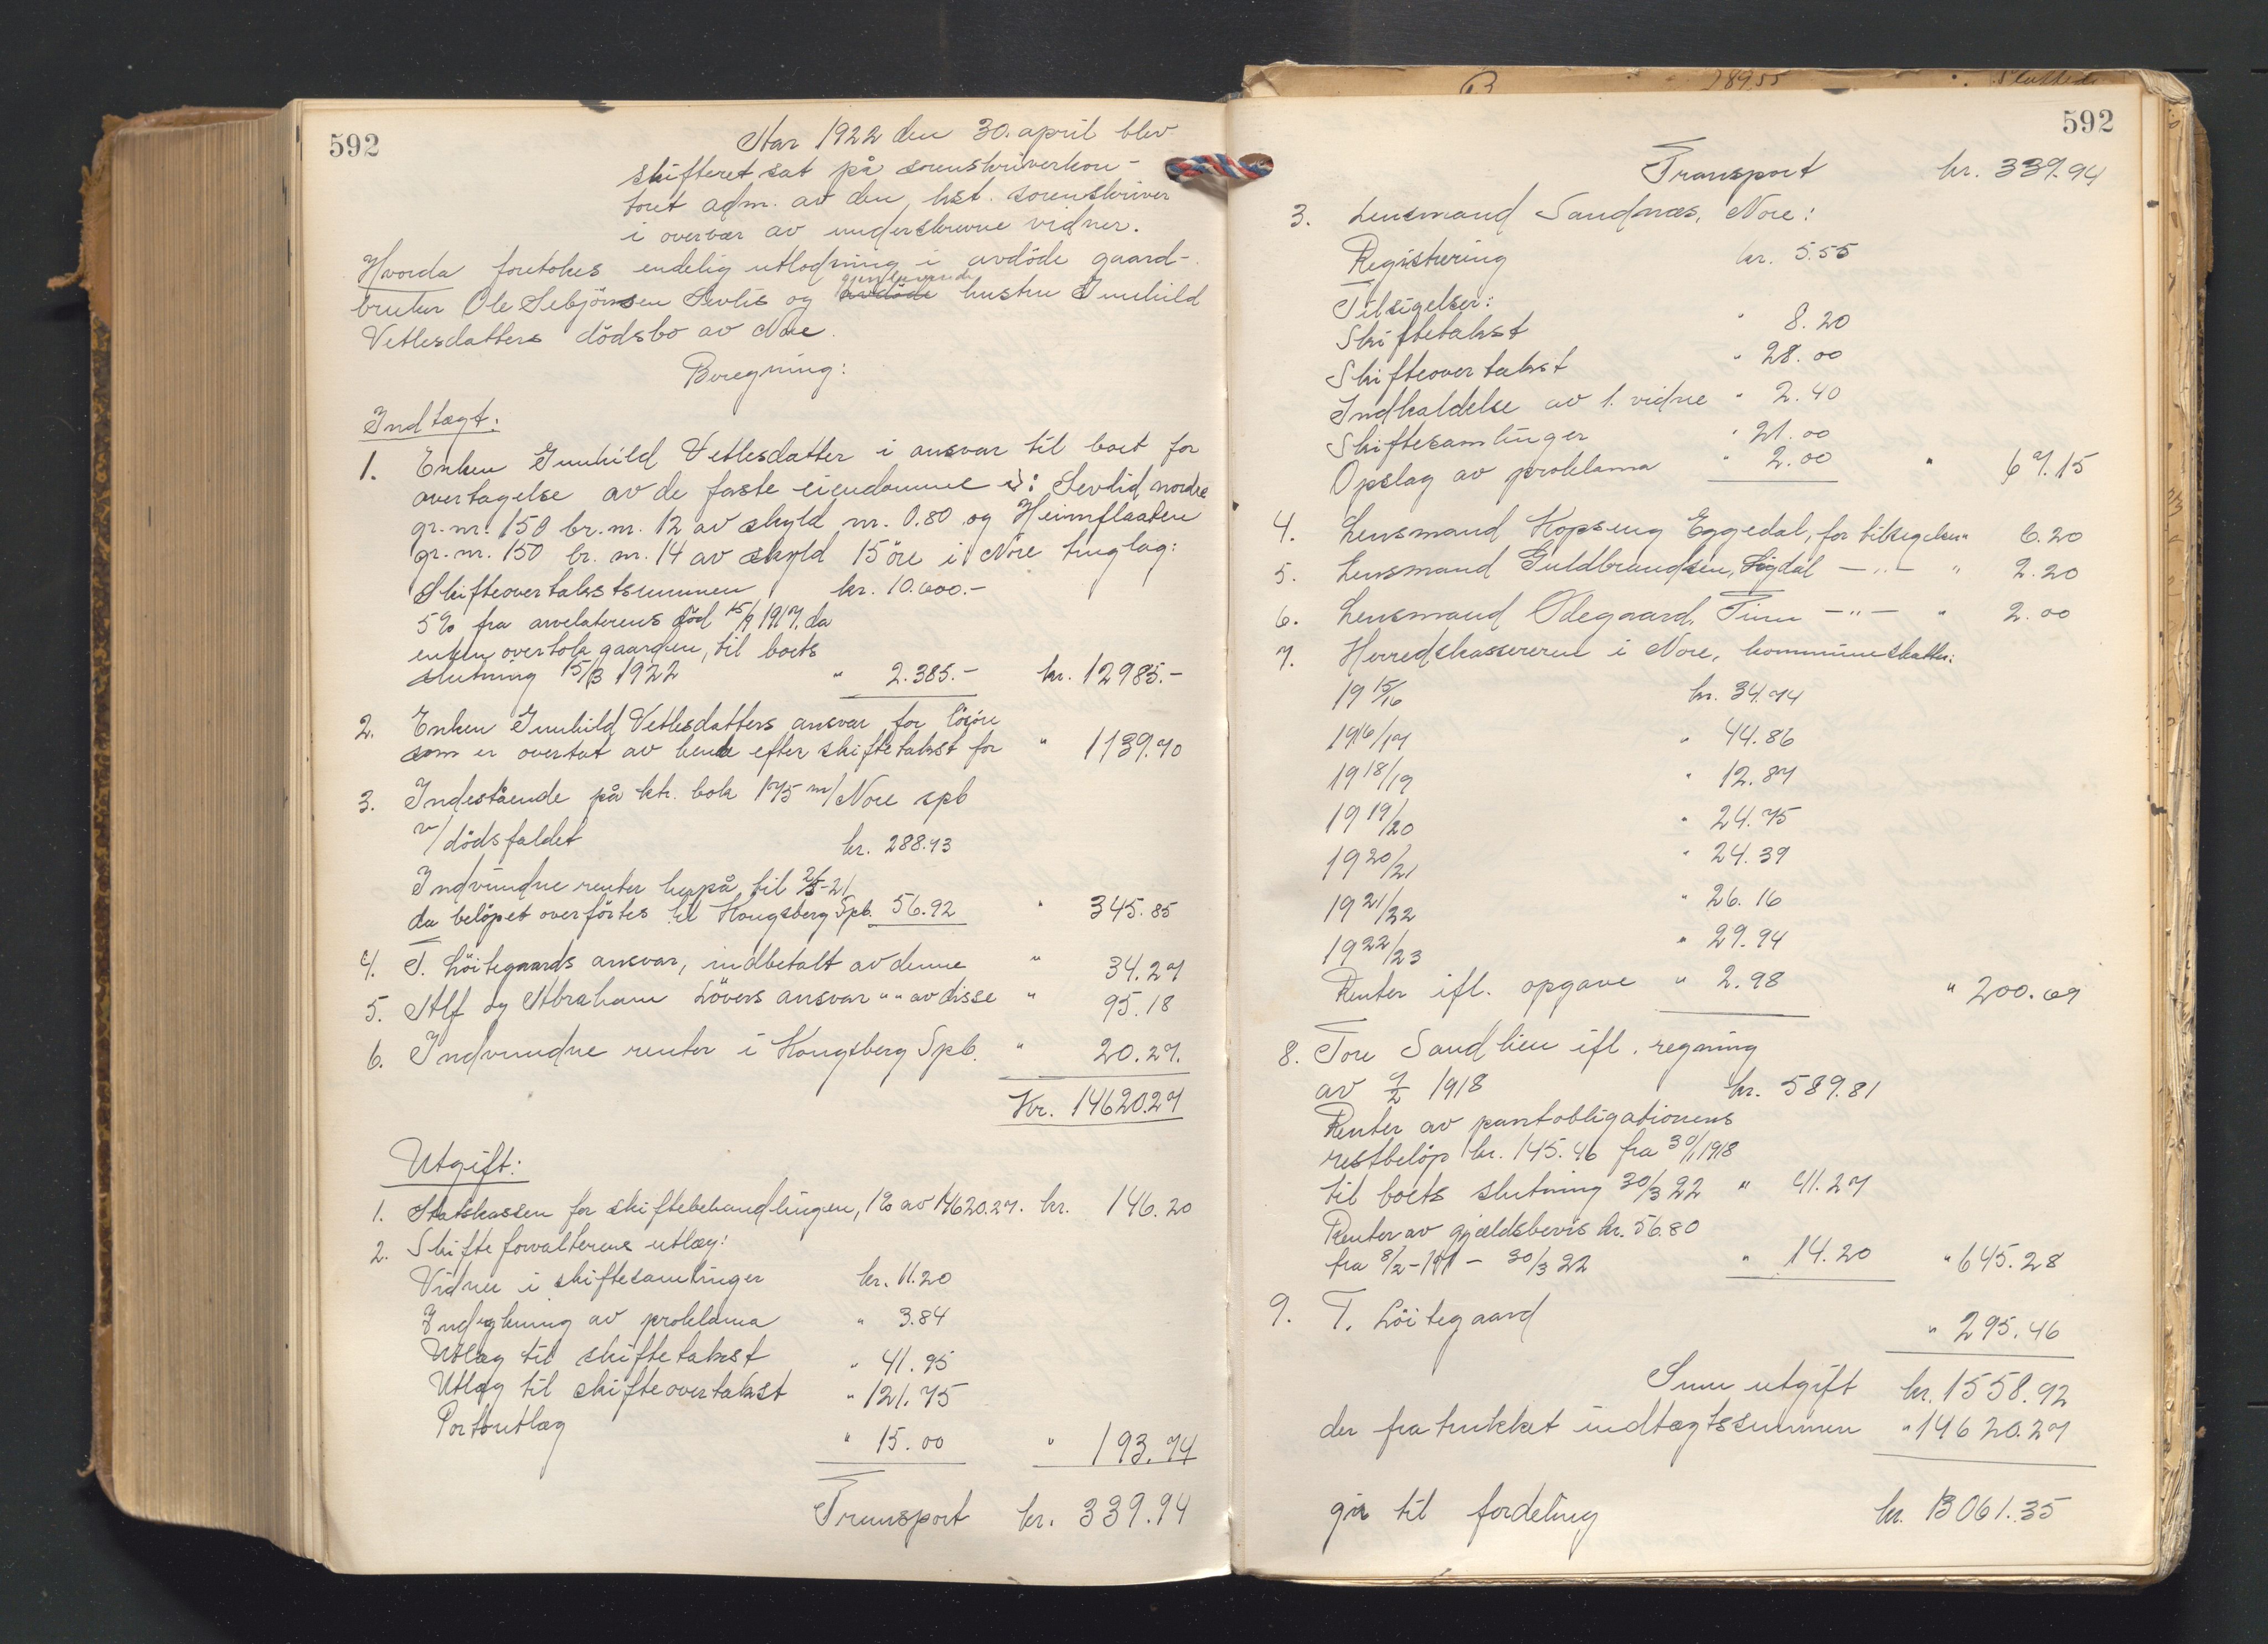 592
Aar 1922 den 30. april blev
skifteret sat på sorenskriverkon-
toret adm. av den kst. sorenskriver
i overvær av underskrevne vidner.
Hvorda foretokes endelig utlodning i avdöde gaard-
gjenlevende
bruker Ole Sebjörnsen Sevlis og avdöde hustru Gunhild
Vetlesdatters dödsbo av Nore.
Beregning:
Indtægt:
1. Enken Gunhild Vetlesdatter i ansvar til boet for
overtagelse av de faste eiendomme ɔ: Sevlid nordre
gr. nr. 150 br. nr. 12 av skyld m. 0.80 og Heimflaaten
gr. nr. 150 br. nr. 14 av skyld 15 öre i Nore tinglag:
Skifteovertakstsummen kr. 10.600.-
5% fra arvelaterens död 15/9 1917, da
enken overtok gaarden, til boets
slutning 15/3 1922 " 2.385.- kr. 12985.-
2. Enken Gunhild Vetlesdatters ansvar for lösöre
som er overtat av hende efter skiftetakst for " 1139.70
3. Indestående på ktr. bok 175 m/ Nore spb
v/ dödsfaldet kr. 288.93
Indvundne renter herpå til 2/5-21
da belöpet overförtes til Kongsberg Spb. 56.92 " 345.85
4. T. Löitegaards ansvar, indbetalt av denne " 34.27
5. Alf og Abraham Lövers ansvar " " av disse " 95.18
6. Indvundne renter i Kongsberg Spb. " 20.27.
Kr. 14620.27
Utgift:
1. Statskassen for skiftebehandlingen, 1% av 14620.27. kr. 146.20
2. Skifteforvalterens utlæg:
Vidner i skiftesamlinger kr. 11.20
Indrykning av proklama " 3.84
Utlæg til skiftetakst " 41.95
Utlæg til skifteovertakst " 121.75
Portoutlæg " 15.00 " 193.74
Transport kr. 339.94
592
Transport kr. 339.94
3. Lensmand Sandnæs, Nore:
Registrering kr. 5.55
Tilsigelser:
Skiftetakst " 8.20
Skifteovertakst " 28.00
Indkaldelse av 1. vidne " 2.40
Skiftesamlinger " 21.00
Opslag av proklama " 2.00 " 67.15
4. Lensmand Kopseng Eggedal, for tilsigelser " 6.20
5. Lensmand Guldbrandsen, Sigdal -"- " 2.20
6. Lensmand Ödegaard, Tinn -"- " 2.00
7. Herredskassereren i Nore, kommuneskatter:
1915/16 kr. 34.74
1916/17 " 44.86
1918/19 " 12.87
1919/20 " 24.75
1920/21 " 24.39
1921/22 " 26.16
1922/23 " 29.94
Renter ifl. opgave " 2.98 " 200.69
8. Tore Sandlien ifl. regning
av 9/2 1918 kr. 589.81
Renter av pantobligationens
restbelöp kr. 145.46 fra 30/1 1918
til boets slutning 30/3 22 " 41.27
Renter av gjældsbevis kr. 56.80
fra 8/2-191 - 30/3 22 " 14.20 " 645.28
9. T. Löitegaard " 295.46
Sum utgift kr. 1558.92
der fratrukket indtægtssummen " 14620.27
gir til fordeling kr. 13061.35